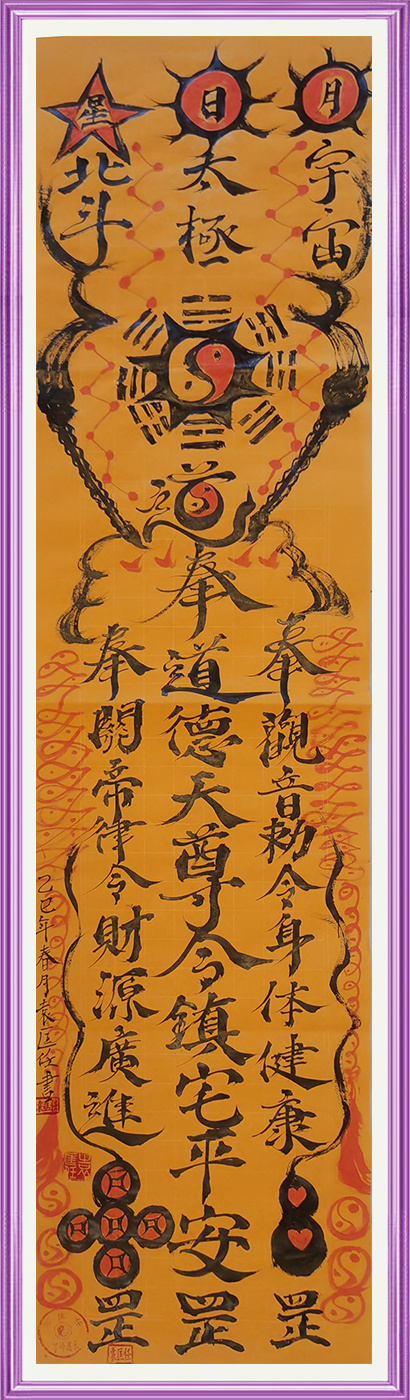 月
宇宙
日
太極
星
北斗
道
奉觀音勅令身体健康罡
奉道德天尊令鎮宅平安罡
奉關帝律令財源廣進罡
乙巳年春月袁匡任書
袁匡任